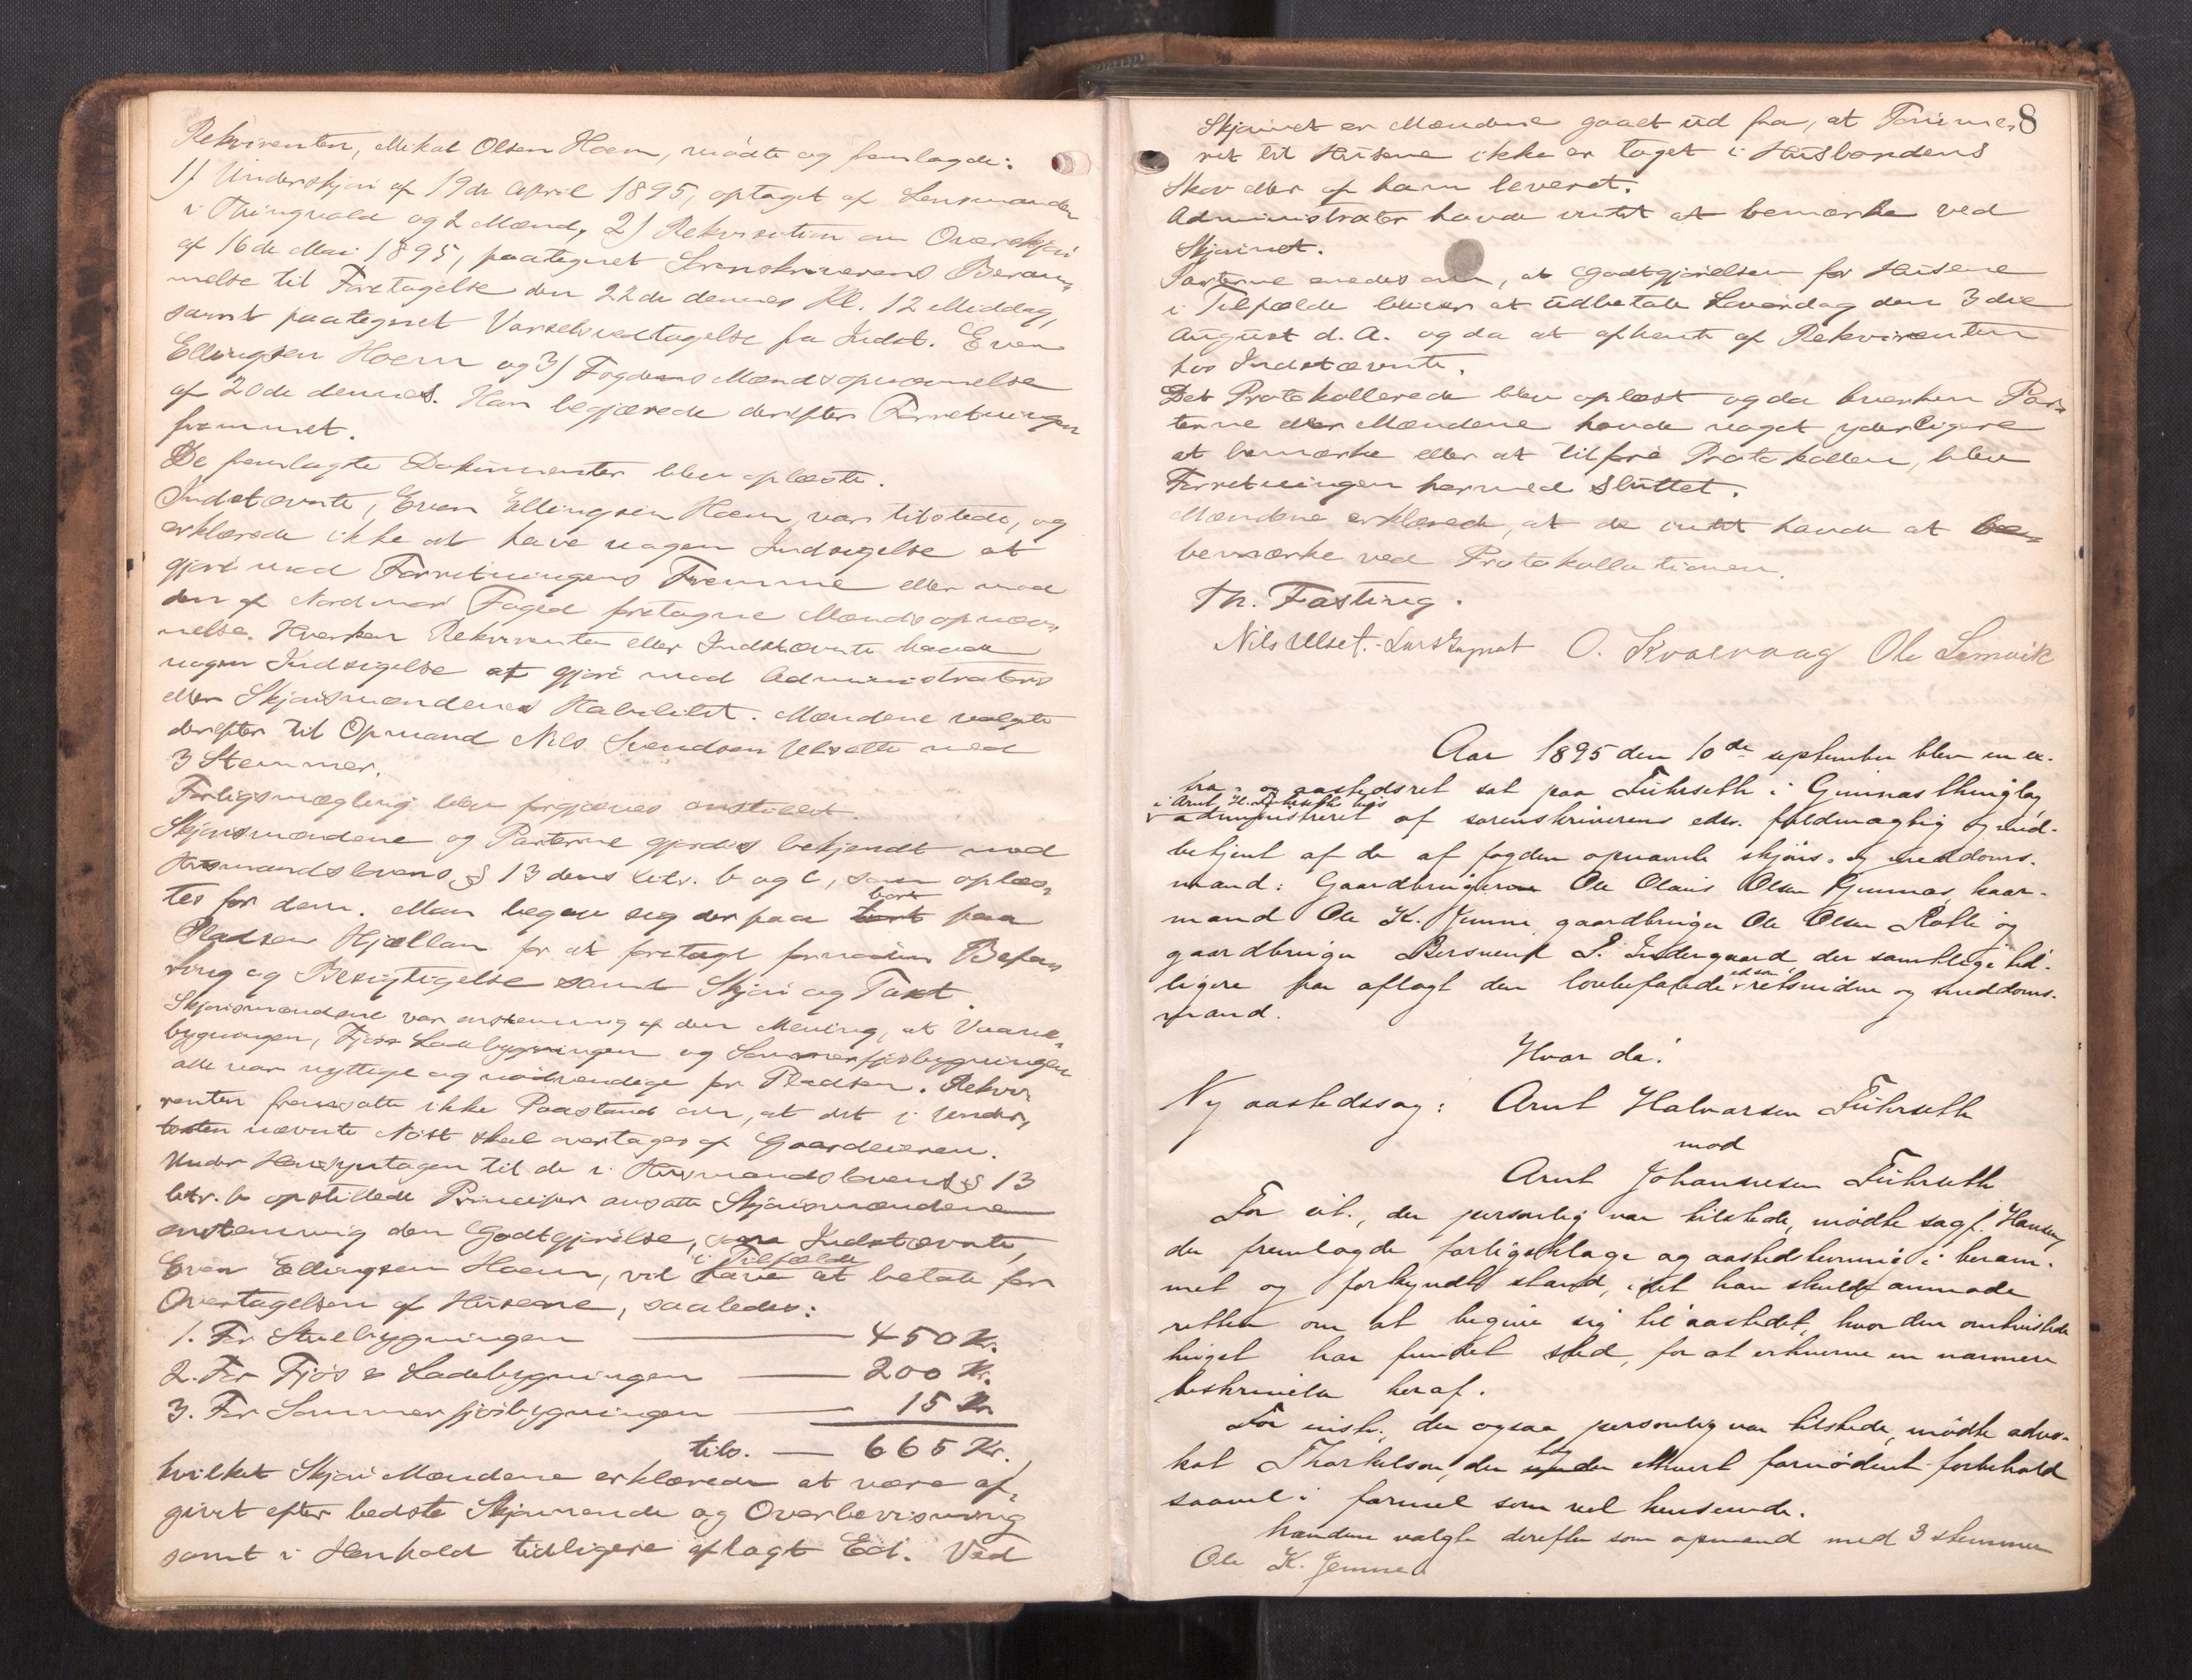 Rekvirenten, Mikal Olsen Hoem, mødte og fremlagde:
1) Underskjøn af 19de April 1895, optaget af Lensmanden
i Thingvold og 2 Mænd, 2) Rekvisition om Overskjøn
af 16de Mai 1895, paategnet Sorenskriverens Beram-
melse til Foretagelse den 22de dennes Kl. 12 Middag,
samt paategnet Varselsvedtagelse fra Indst. Even
Ellingsen Hoem og 3) Fogdens Mændsopnævnelse
af 20de dennes. Han begjærede derefter Forretningen
fremmet.
De fremlagte Dokumenter blev oplæste.
Indstævnte, Even Ellingsen Hoem, var tilstede, og
erklærede ikke at have nogen Indsigelse at
gjøre mod Forretningens Fremme eller mod
den af Nordmør Foged foretagne Mændsopnæv-
nelse. Hverken Rekvirenten eller Indstævnte havde
nogen Indsigelse at gjøre mod Administrators
eller Skjønsmændenes Habilitet. Mændene valgte
derefter til Opmand Nils Svendsen Ulsetti med
3 Stemmer.
Forligsmægling blev forgjæves anstillet.
Skjønsmændene og Parterne gjordes bekjendt med
Husmandslovens § 13 dens Litr. b og c, som oplæs-
tes for dem. Man begav sig derpaa bort paa
Pladsen Hjællan for at foretage fornøden Befa-
ring og Besigtigelse samt Skjøn og Taxt.
Skjønsmændene var enstemmig af den Mening, at Vaane-
bygningen, Fjøs- Ladebygningen og Sommerfjøsbygningen
alle var nyttige og nødvendige for Pladsen. Rekvi-
renten fremsatte ikke Paastand om, at det i Under-
taxten nævnte Nøst skal overtages af Gaardeieren.
Under Hensyntagen til de i Husmandslovens § 13
litr. b opstillede Principer ansatte Skjønsmændene
enstemmig den Godtgjørelse, som Indstævnte,
Even Ellingsen Hoem, vil i Tilfælde have at betale for
Overtagelsen af Husene, saaledes:
1. For Stuebygningen — 450 Kr.
2. For Fjøs & Ladebygningen — 200 Kr.
3. For Sommerfjøsbygningen — 15 Kr.
tils. — 665 Kr.
hvilket Skjøn Mændene erklærede at være af-
givet efter bedste Skjønnende og Overbevisning
samt i Henhold tidligere aflagt Ed. Ved
8
Skjønnet er Mændene gaaet ud fra, at Tømme-
ret til Husene ikke er taget i Husbondens
Skov eller af ham leveret.
Administrator havde intet at bemærke ved
Skjønnet.
Parterne enedes om, at Godtgjørelsen for Husene
i Tilfælde bliver at udbetale Lørerdag den 3die
August d. A. og da at afhente af Rekvirenten
hos Indstævnte.
Det Protokollerede blev oplæst og da hverken Par-
terne eller Mændene havde noget yderligere
at bemærke eller at tilføre Protokollen, blev
Forretningen hermed sluttet.
Mændene erklærede, at de intet havde at be-
bemærke ved Protokollationen.
Th. Fasting.
Nils Ulset. O. Kvalvaag Ole Simvik
Aar 1895 den 10de september blev en ex-
tra- og aastedsret sat paa Fuhrseth i Gimnæs thinglag
i Arnt H. Fuhrseths hus
administreret af sorenskriverens edsv. fuldmægtig og med-
betjent af de af fogden opnævnte skjøns- og meddoms-
mænd: Gaardbrugerne Ole Olaus Olsen Gimnæs, kaar-
mand Ole K. Jemne, gaardbruger Ole Olsen og
gaardbruger S. Indergaard der samtlige tid-
ligere har aflagt den lovbefalede ed som retsvidne og meddoms-
mænd.
Hvor da:
Ny aastedssag: Arnt Halvorsen Fuhrseth
mod
Arnt Johannesen Fuhrseth
For cit., der personlig var tilstede, mødte sagf. Hansen
der fremlagde forligsklage og aastedstevning i beram-
met og forkyndt stand, idet han skulde anmode
retten om at begive sig til aastedet, hvor den omtvistede
har fundet sted, for at erhverve en nærmere
beskrivelse heraf.
For inst., der ogsaa personlig var tilstede, mødte advo-
kat Thorkelson, der tog ethvert fornødent forbehold
saavel i formel som reel henseende.
Mændene valgte derefter som opmand med 3 stemmer
Ole K. Jemne.